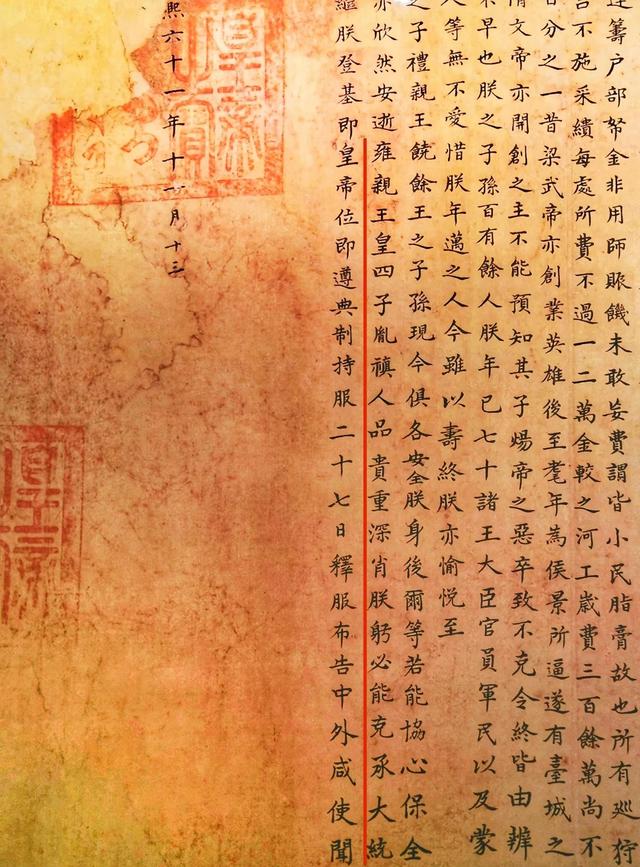 籌户部帑金非用師賑饑未敢妄費謂皆小民脂膏故也所有巡狩
不施采繢每處所費不過一二萬金較之河工歲費三百餘萬尚不
百分之一昔梁武帝亦創業英雄後至耄年為侯景所逼遂有臺城之
隋文帝亦開創之主不能預知其子煬帝之惡卒致不克令終皆由辨
不早也朕之子孫百有餘人朕年已七十諸王大臣官員軍民以及蒙
人等無不愛惜朕年邁之人今雖以壽終朕亦愉悅至
之子禮親王饒餘王之子孫現今俱各安全朕身後爾等若能協心保全
亦欣然安逝雍親王皇四子胤禛人品貴重深肖朕躬必能克承大統
繼朕登基即皇帝位即遵典制持服二十七日釋服布告中外咸使聞
熙六十一年十一月十三